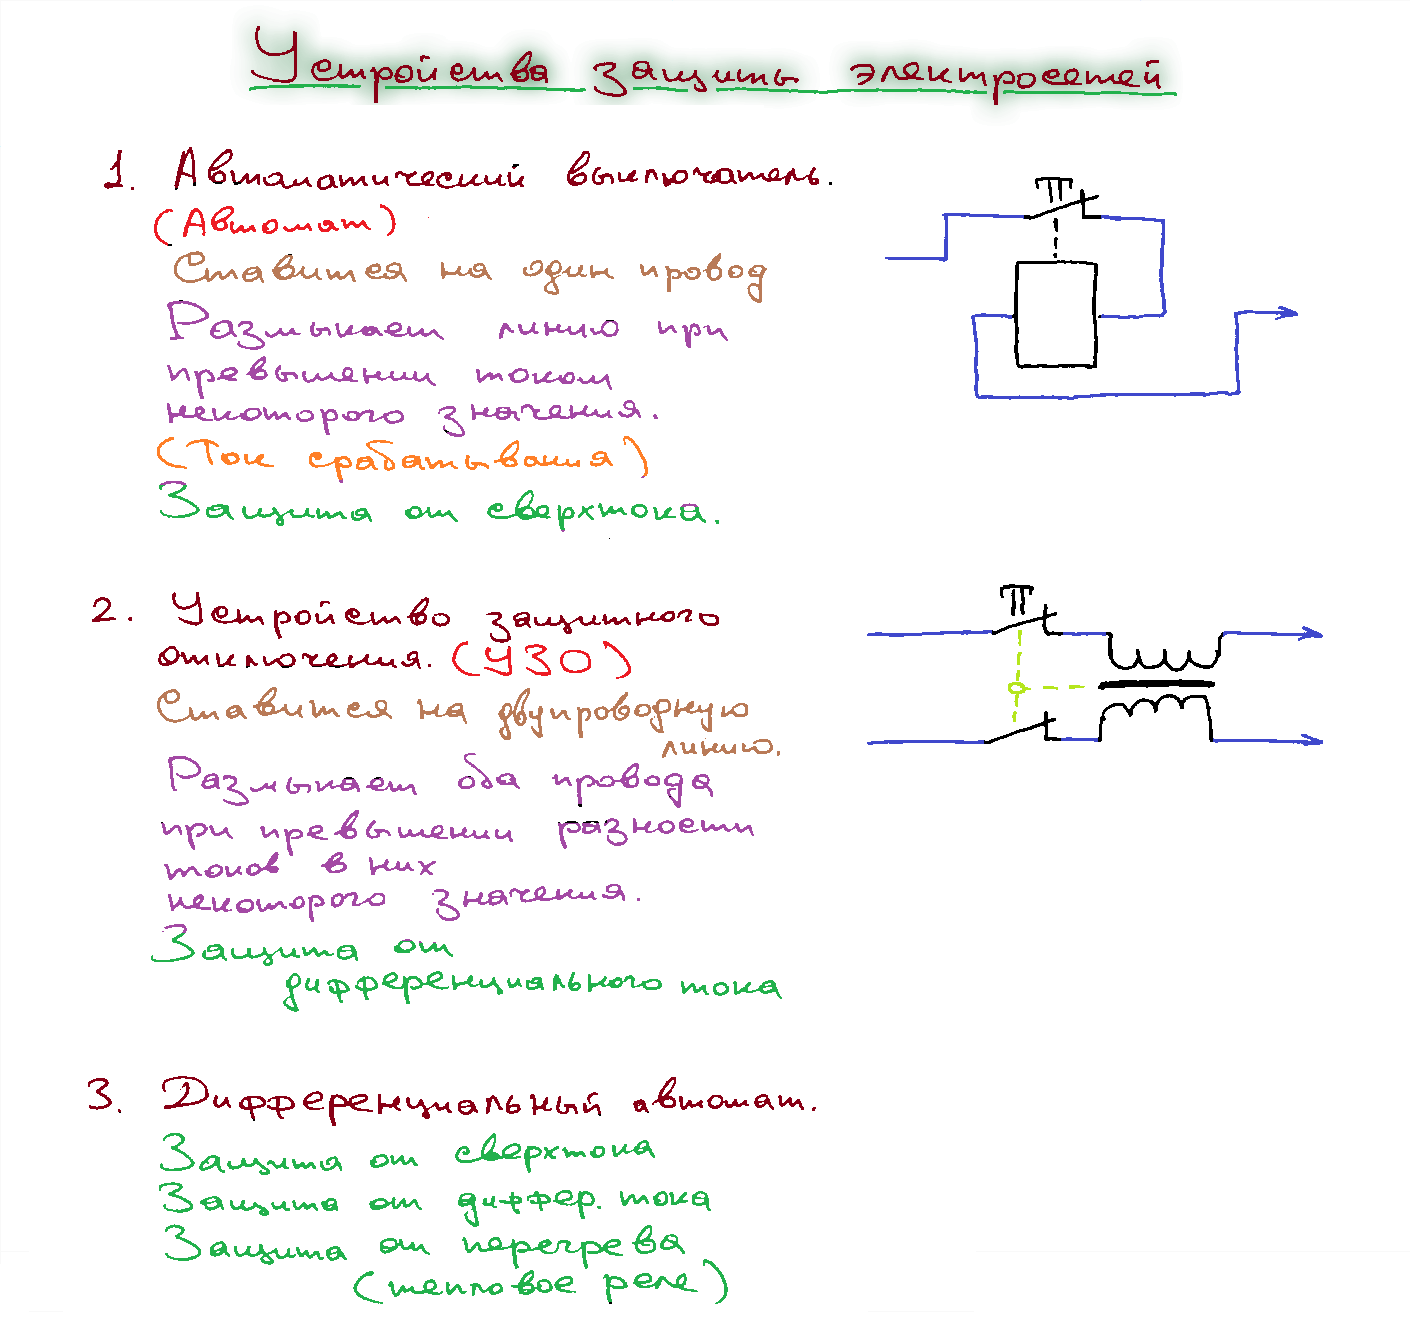 Устройства защиты электросетей
1. Автоматический выключатель.
(Автомат)
Ставится на один провод
Размыкает линию при
превышении током
некоторого значения.
(Ток срабатывания)
Защита от сверхтока.
2. Устройство защитного
отключения. (УЗО)
Ставится на двупроводную
линию.
Размыкает оба провода
при превышении разности
токов в них
некоторого значения.
Защита от
дифференциального тока
3. Дифференциальный автомат.
Защита от сверхтока
Защита от диффер. тока
Защита от перегрева
(тепловое реле)